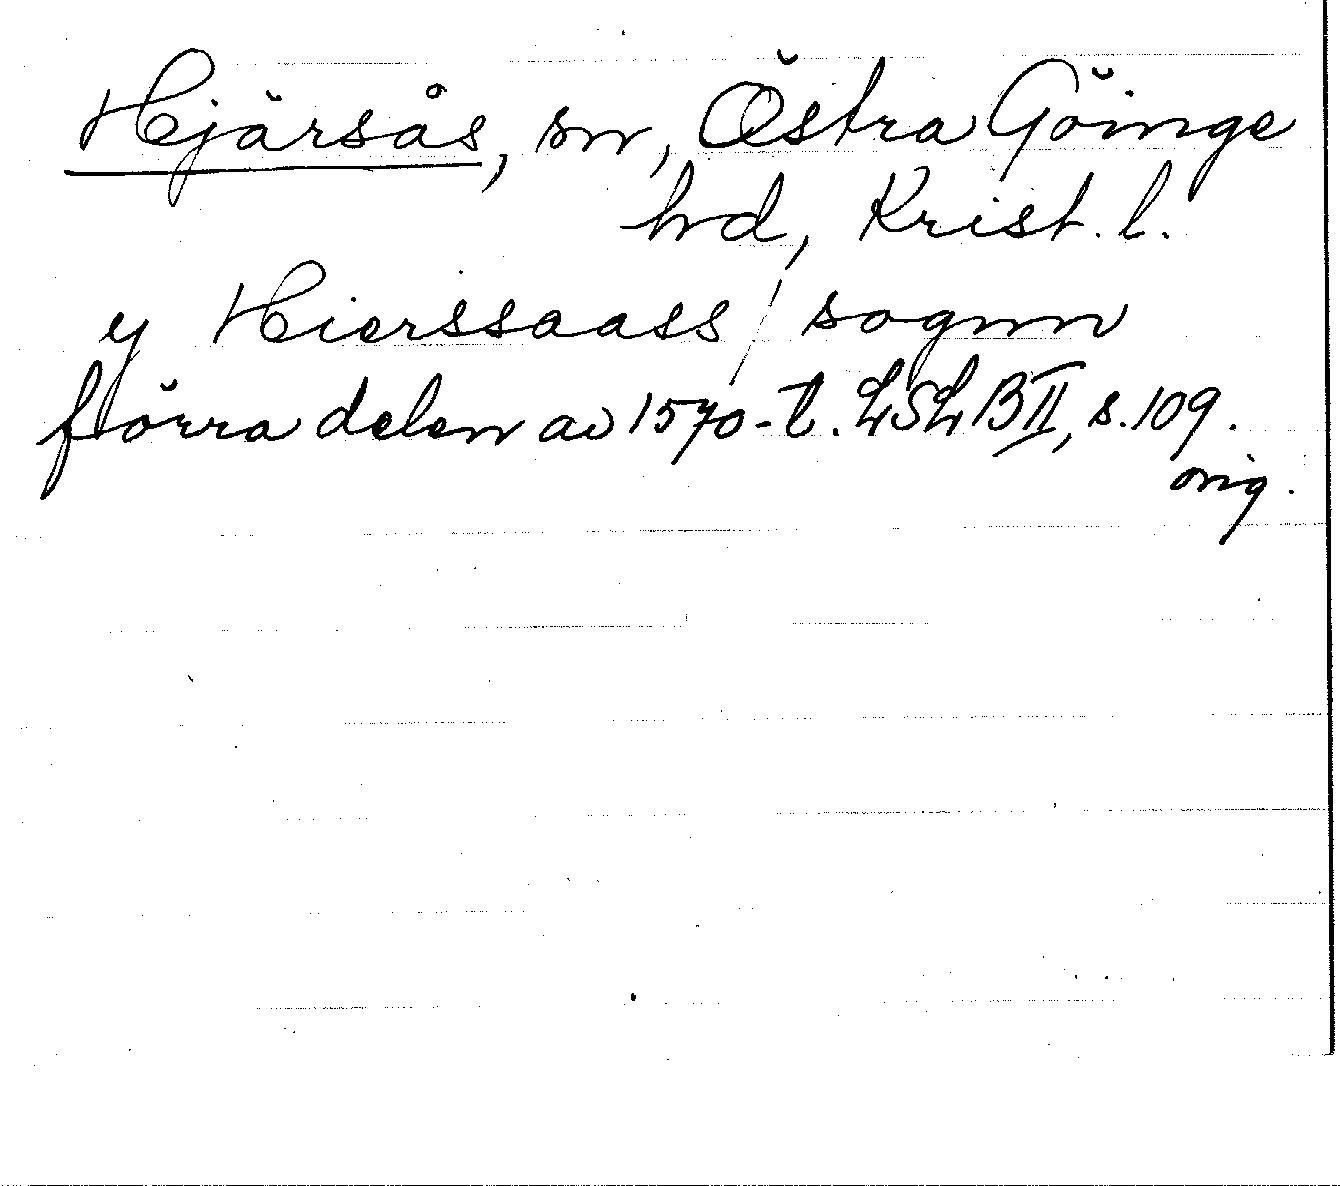 Hjärsås, sn, Östra Göinge
hd, Krist. l.
y Hierssaass / sognn
förra delen av 1570-t. LSL BII, s. 109.
orig.